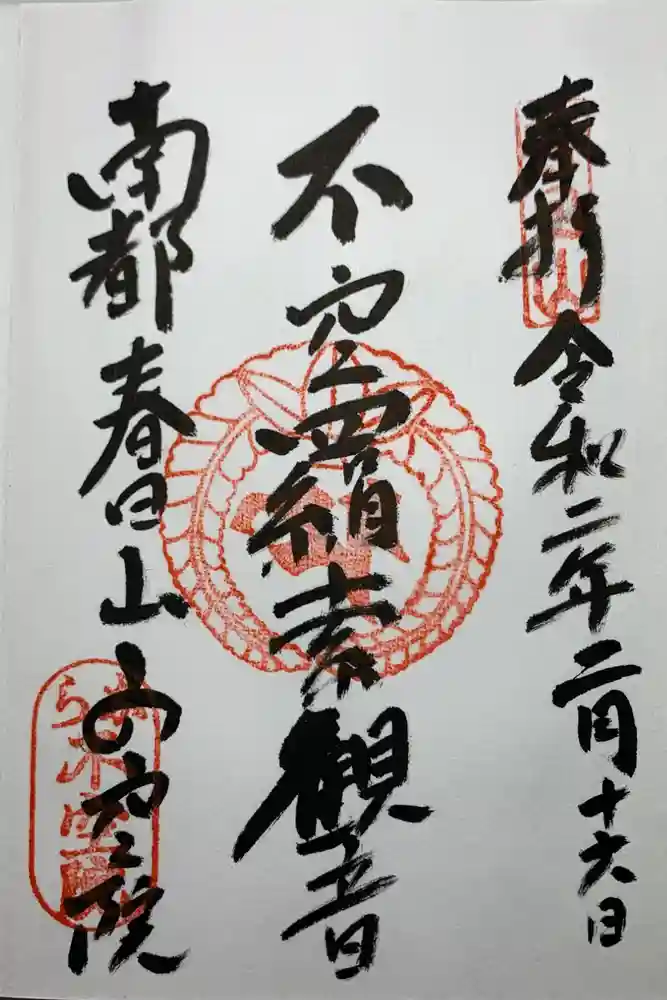 奉拝 令和二年二月十六日
不空羂索観音
南都 春日山 不空院